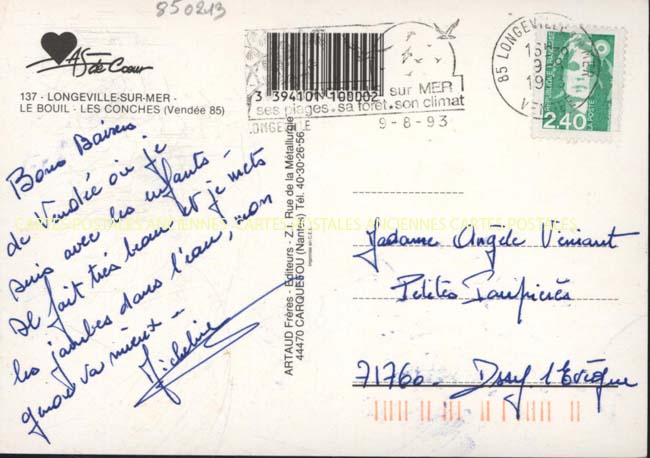 850213
As de Cœur
137 - LONGEVILLE-SUR-MER -
LE BOUIL - LES CONCHES (Vendée 85)
3 394101 100002
sur MER
ses plages . sa forêt . son climat
LONGEVILLE
9 - 8 - 93
85 LONGEVILLE
REPUBLIQUE FRANÇAISE
LA POSTE
2,40
Bons Baisers
de Vendée où je
suis avec les enfants -
Il fait très beau et je mets
les jambes dans l'eau, mon
genou va mieux -
Micheline
ARTAUD Frères - Editeurs - Z.I., Rue de la Métallurgie
44470 CARQUEFOU (Nantes) Tél. 40-30-26-56
CARTES POSTALES ANCIENNES CARTES POSTALES ANCIENNES CARTES POSTALES ANCIENNES
Madame Angèle
Petites
71760 - Issy l'Evêque